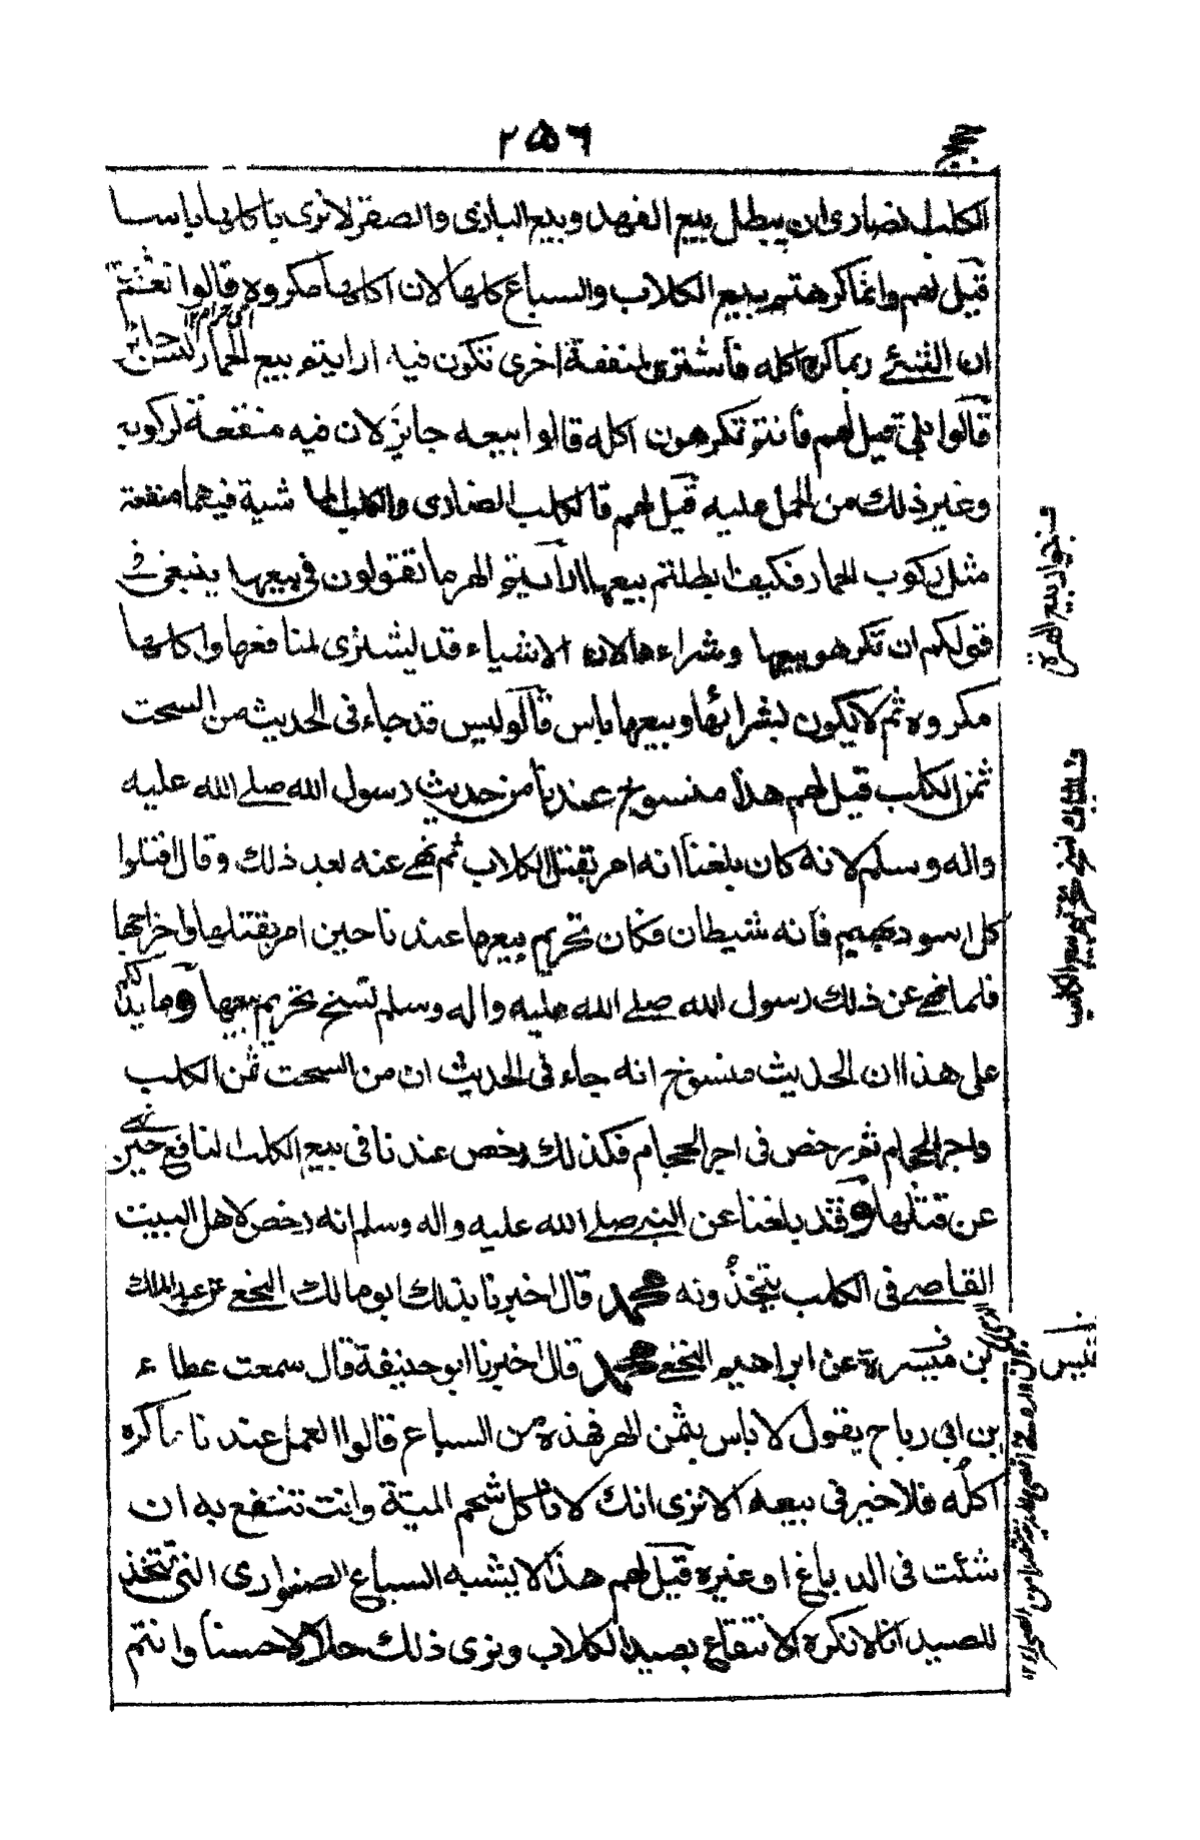 ٢٥٦
حجج
الكلب لضاري ان يبطل بيع الفهد وبيع البازي والصقر لا نرى باكلها باسا
قيل لهم وانما كرهتم بيع الكلاب والسباع كلها لان اكلها مكروه قالوا نعم
ان الشئ ربما كره اكله فاشترى لمنفعة اخرى تكون فيه ارايتم بيع الحمار ليس جائز
اى حرام ١٢
قالوا بلى قيل لهم فانتم تكرهون اكله قالوا بيعه جايز لان فيه منفعة لركوبه
وغير ذلك من الحمل عليه قيل لهم فالكلب الضاري والكلب الماشية فيهما منفعة
مثل ركوب الحمار فكيف ابطلتم بيعها ارأيتم الهر ما تقولون في بيعها ينبغى فى
قولكم ان تكرهو بيعها وشراءها لان الاشياء قد ليشترى لمنافعها واكلها
مكروه ثم لا يكون بشرائها وبيعها باس قالو ليس قد جاء في الحديث من السحت
ثمن الكلب قيل لهم هذا منسوخ عندنا من حديث رسول الله صلى الله عليه
واله وسلم لانه كان بلغنا انه امر بقتل الكلاب ثم نهى عنه بعد ذلك وقال اقتلوا
كل اسود بهيم فانه شيطان فكان تحريم بيعها عندنا حين امر بقتلها واخراجها
فلما نهى عن ذلك رسول الله صلى الله عليه واله وسلم نسخ تحريم بيعها وما يدلكم
على هذا ان الحديث منسوخ انه جاء في الحديث ان من السحت ثمن الكلب
واجر الحجام ثم رخص في اجر الحجام فكذلك رخص عندنا في بيع الكلب النافع حين نهى
عن قتلها وقد بلغنا عن النبى صلى الله عليه واله وسلم انه رخص لاهل البيت
القاصى في الكلب يتخذونه محمد قال اخبرنا بذلك ابو مالك النخعى عن عبد الملك
بن ميسرة عن ابراهيم النخعى محمد قال اخبرنا ابو حنيفة قال سمعت عطاء
بن ابي رباح يقول لا باس بثمن الهر فهذه من السباع قالوا العمل عندنا ما كره
اكله فلا خير في بيعه الا ترى انك لا تاكل شحم الميتة وانت تنتفع به ان
شئت في الدباغ او غيره قيل لهم هذا لا يشبه السباع الضواري التى تتخذ
للصيد انا لا نكره الانتفاع بصيد الكلاب ونرى ذلك حلالا حسنا وانتم
ف جواز بيع الهرة